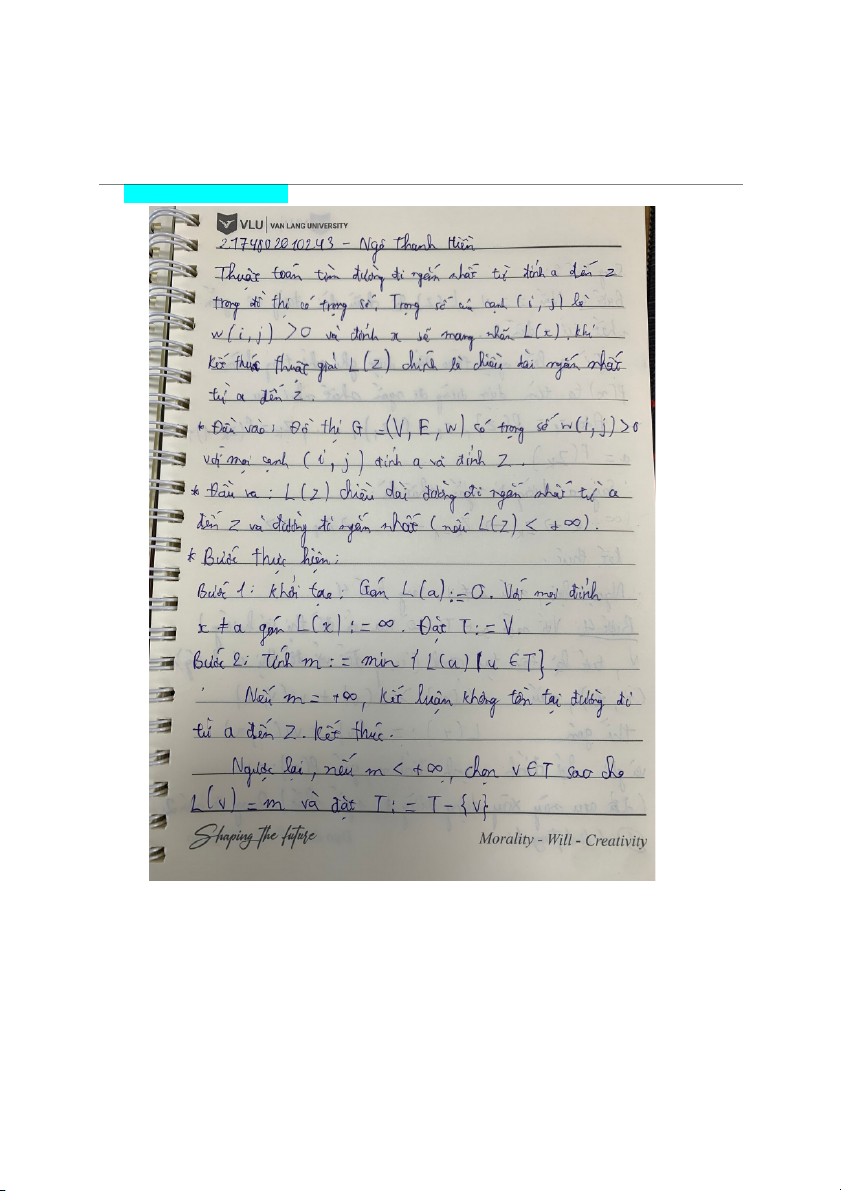 VLU VAN LANG UNIVERSITY
2174802010243 - Ngô Thanh Hiền
Thuật toán tìm đường đi ngắn nhất từ đỉnh a đến z
trong đồ thị có trọng số. Trọng số của cạnh (i, j) là
w(i, j) > 0 và đỉnh x sẽ mang nhãn L(x), khi
kết thúc thuật giải L(z) chính là chiều dài ngắn nhất
từ a đến z.
* Đầu vào: Đồ thị G = (V, E, w) có trọng số w(i, j) > 0
với mọi cạnh (i, j) đỉnh a và đỉnh z.
* Đầu ra: L(z) chiều dài đường đi ngắn nhất từ a
đến z và đường đi ngắn nhất (nếu L(z) < +∞).
* Bước thực hiện:
Bước 1: Khởi tạo: Gán L(a) := 0. Với mọi đỉnh
x ≠ a gán L(x) := ∞. Đặt T := V.
Bước 2: Tính m := min { L(u) | u ∈ T }.
Nếu m = +∞, kết luận không tồn tại đường đi
từ a đến z. Kết thúc.
Ngược lại, nếu m < +∞, chọn v ∈ T sao cho
L(v) = m và đặt T := T - {v}
Shaping the future Morality - Will - Creativity